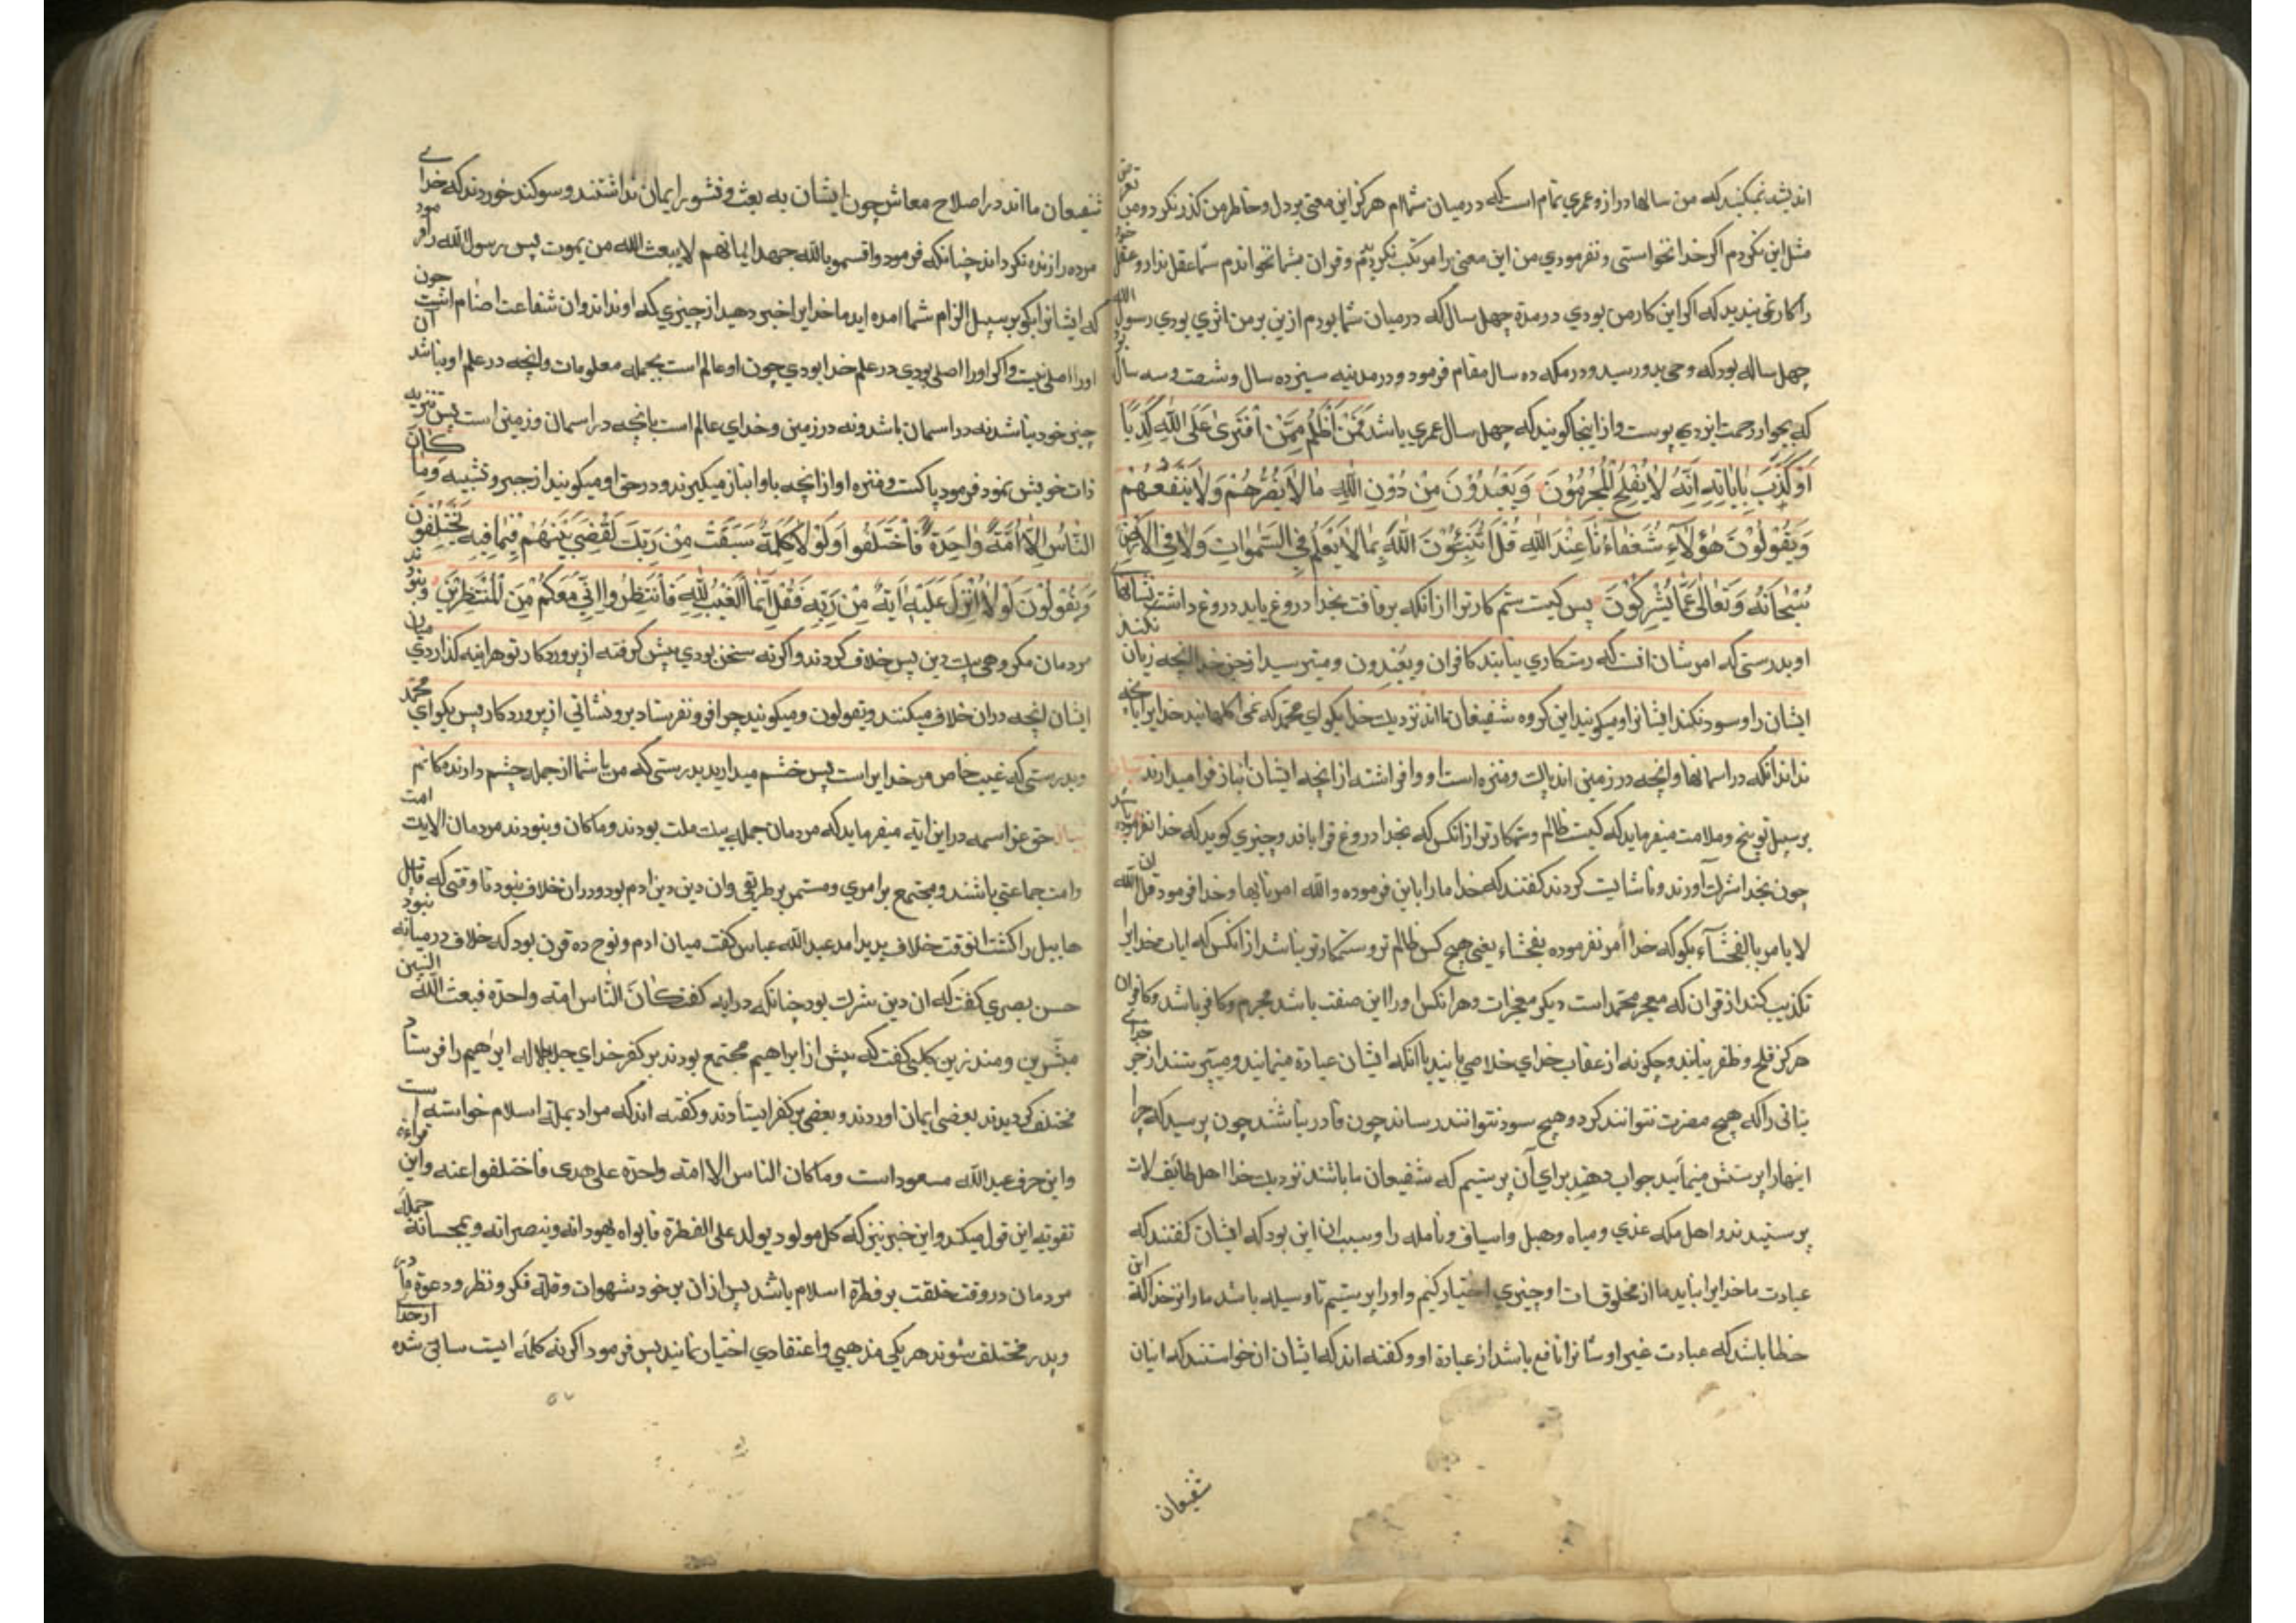 اندیشه نمیکنید که من سالها دراز و عمری تمام است که در میان شماام هرگز این معنی بر دل و خاطر من گذر نکرد و من تعرض
مثل این نکردم اگر خدا نخواستی و نفرمودی من این معنی را مرتکب نکردیمی و قران بشما نخواندم شما عقل ندارید و عقل خود
را کار نمی بندید که اگر این کار من بودی در مدة چهل سال که در میان شما بودم ازین بر من اثری بودی رسول الله
چهل ساله بود که وحی بدو رسید و در مکه ده سال مقام فرمود و در مدینه سیزده سال و شصت و سه سال بود
که بجوار رحمت ایزدی پیوست و از اینجا گویند که چهل سال عمری باشد فَمَنْ أَظْلَمُ مِمَّنْ افْتَرَىٰ عَلَى اللَّهِ كَذِبًا
أَوْ كَذَّبَ بِآيَاتِهِ إِنَّهُ لَا يُفْلِحُ الْمُجْرِمُونَ وَيَعْبُدُونَ مِنْ دُونِ اللَّهِ مَا لَا يَضُرُّهُمْ وَلَا يَنْفَعُهُمْ
وَيَقُولُونَ هَٰؤُلَاءِ شُفَعَاؤُنَا عِنْدَ اللَّهِ قُلْ أَتُنَبِّئُونَ اللَّهَ بِمَا لَا يَعْلَمُ فِي السَّمَوَاتِ وَلَا فِي الْأَرْضِ
سُبْحَانَهُ وَتَعَالَىٰ عَمَّا يُشْرِكُونَ پس کیست ستم کارتر از انکه بربافت بخدا دروغ یا بدروغ داشت نشانهای
او بدرستی که امر شان انست که رستکاری نیابند کافران ویعبدون و میپرستند از جز خدا انچه زیان نکند
ایشان را و سود نکند ایشانرا و میکویند این کروه شفیعان مااند نزدیک خدا بکو ای محمد که نمی اگاهانید خدایرا بانچه
نداند انکه در اسمانها و انچه در زمینی اند پاک و منزه است او و افراشته از انچه ایشان انباز فرا میدارند
بر سبیل توبیخ و ملامت میفرماید که کیست ظالم و ستمکارتر از انکس که بخدا دروغ فرا بافد و چیزی گوید که خدا نفرموده باشد
چون بخدا شرک آورند و ناشایست کردند گفتند که خدا ما را باین فرموده والله امرنا بها و خدا فرمود قل ان الله
لا یامر بالفحشآء بکو که خدا أمر نفرموده بفحشاء یعنی هیچ کس ظالم تر و ستمکارتر نباشد از انکس که ایات خدایرا
تکذیب کند از قران که معجز محمد است و دیکر معجزات و هر انکس او را این صفت باشد مجرم و کافر باشد و کافران
هرکز فلح و ظفر نیابند و چکونه از عقاب خدای خلاصی یابند با انکه ایشان عبادة مینمایند و میپرستند از جز خدای
بتانی را که هیچ مضرت نتوانند کرد و هیچ سود نتوانند رساند چون قادر نباشند چون پرسید که چرا
اینها را پرستش مینمایید جواب دهند برای آن پرستیم که شفیعان ما باشند نزدیک خدا اهل طایف لات
پرستیدند و اهل مکه عزی و مناه و هبل و اساف و نایله را و سبب ان این بود که ایشان گفتند که
عبادت ما خدایرا نباید ما از مخلوقات او چیزی اختیار کنیم و او را پرستیم تا وسیله باشد ما را نزد خدا که این
خطا باشد که عبادت غیر او شانرا نافع باشد از عبادة او و گفته اند که ایشان ان خواستند که اینان
شفیعان
شفیعان مااند در اصلاح معاش چون ایشان به بعث و نشور ایمان نداشتند و سوکند خوردند که خدای
مرده را زنده نکرداند چنانکه فرمود و اقسموا بالله جهد ایمانهم لا یبعث الله من یموت پس رسول الله را فرمود
که ایشانرا بکو بر سبیل الزام شما امده اید ما خدایرا خبر دهید از چیزی که او نداند و ان شفاعت اصنام است چون
اورا اصلی نیست و اگر اورا اصلی بودی در علم خدا بودی چون او عالم است بجمله معلومات و انچه در علم او نباشد ان
چیز خود نباشد نه در اسمان باشد و نه در زمین و خدای عالم است بانچه در اسمان و زمینی است پس تنزیه
ذات خویش نمود فرمود پاکست و منزه او از انچه باو انباز میکیرند و در حق او میکویند از جبر و تشبیه وَمَا كَانَ
النَّاسُ إِلَّا أُمَّةً وَاحِدَةً فَاخْتَلَفُوا وَلَوْلَا كَلِمَةٌ سَبَقَتْ مِنْ رَبِّكَ لَقُضِيَ بَيْنَهُمْ فِيمَا فِيهِ يَخْتَلِفُونَ
وَيَقُولُونَ لَوْلَا أُنْزِلَ عَلَيْهِ آيَةٌ مِنْ رَبِّهِ فَقُلْ إِنَّمَا الْغَيْبُ لِلَّهِ فَانْتَظِرُوا إِنِّي مَعَكُمْ مِنَ الْمُنْتَظِرِينَ و نبودند
مردمان مکر گروهی بیک دین پس خلاف کردند و اکر نه سخن بودی پیش گرفته از پروردکار تو هراینه کذاردی میان
ایشان انچه دران خلاف میکنند ویقولون و میکویند چرا فرو نفرستاد برو نشانی از پروردکار پس بکو ای محمد
و بدرستی که غیب خاص مر خدایراست پس چشم میدارید بدرستی که من با شما از جمله چشم دارندکانم
حق عز اسمه در این ایه میفرماید که مردمان جمله بیک ملت بودند و ما کان و نبودند مردمان الا یک امت
و امت جماعتی باشند و مجتمع بر امری و مستمر بر طریقی و ان دین دین ادم بود و دران خلاف نبود تا وقتی که قابیل
هابیل را کشت انوقت خلاف پدید امد عبدالله عباس گفت میان ادم و نوح ده قرن بود که خلاف درمیانه نبود
حسن بصری گفت که ان دین شرک بود چنانکه در ایه گفت کَانَ النَّاس امة واحدة فبعث الله النبیین
مبشرین و منذرین کلبی گفت که پیش از ابراهیم مجتمع بودند بر کفر خدای جل جلاله ابراهیم را فرستاد
مختلف کردیدند بعضی ایمان اوردند و بعضی بر کفر ایستادند و گفته اند که مراد بملتی اسلام خواسته است
و این حرف عبدالله مسعود است وما کان الناس الا امة واحدة علی هدی فاختلفوا عنه و این قراءة
تقویه این قول میکند و این خبر نیز که کل مولود یولد علی الفطرة فابواه یهودانه و ینصرانه و یمجسانه جمله
مردمان در وقت خلقت بر فطرة اسلام باشد پس ازان بر خود شهوات و قلة فکر و نظر و دعوة مادر
و پدر مختلف شوند هر یکی مذهبی و اعتقادی اختیار نمایند پس فرمود اکر نه کلمه ایست سابق شده از خدای
۵۷